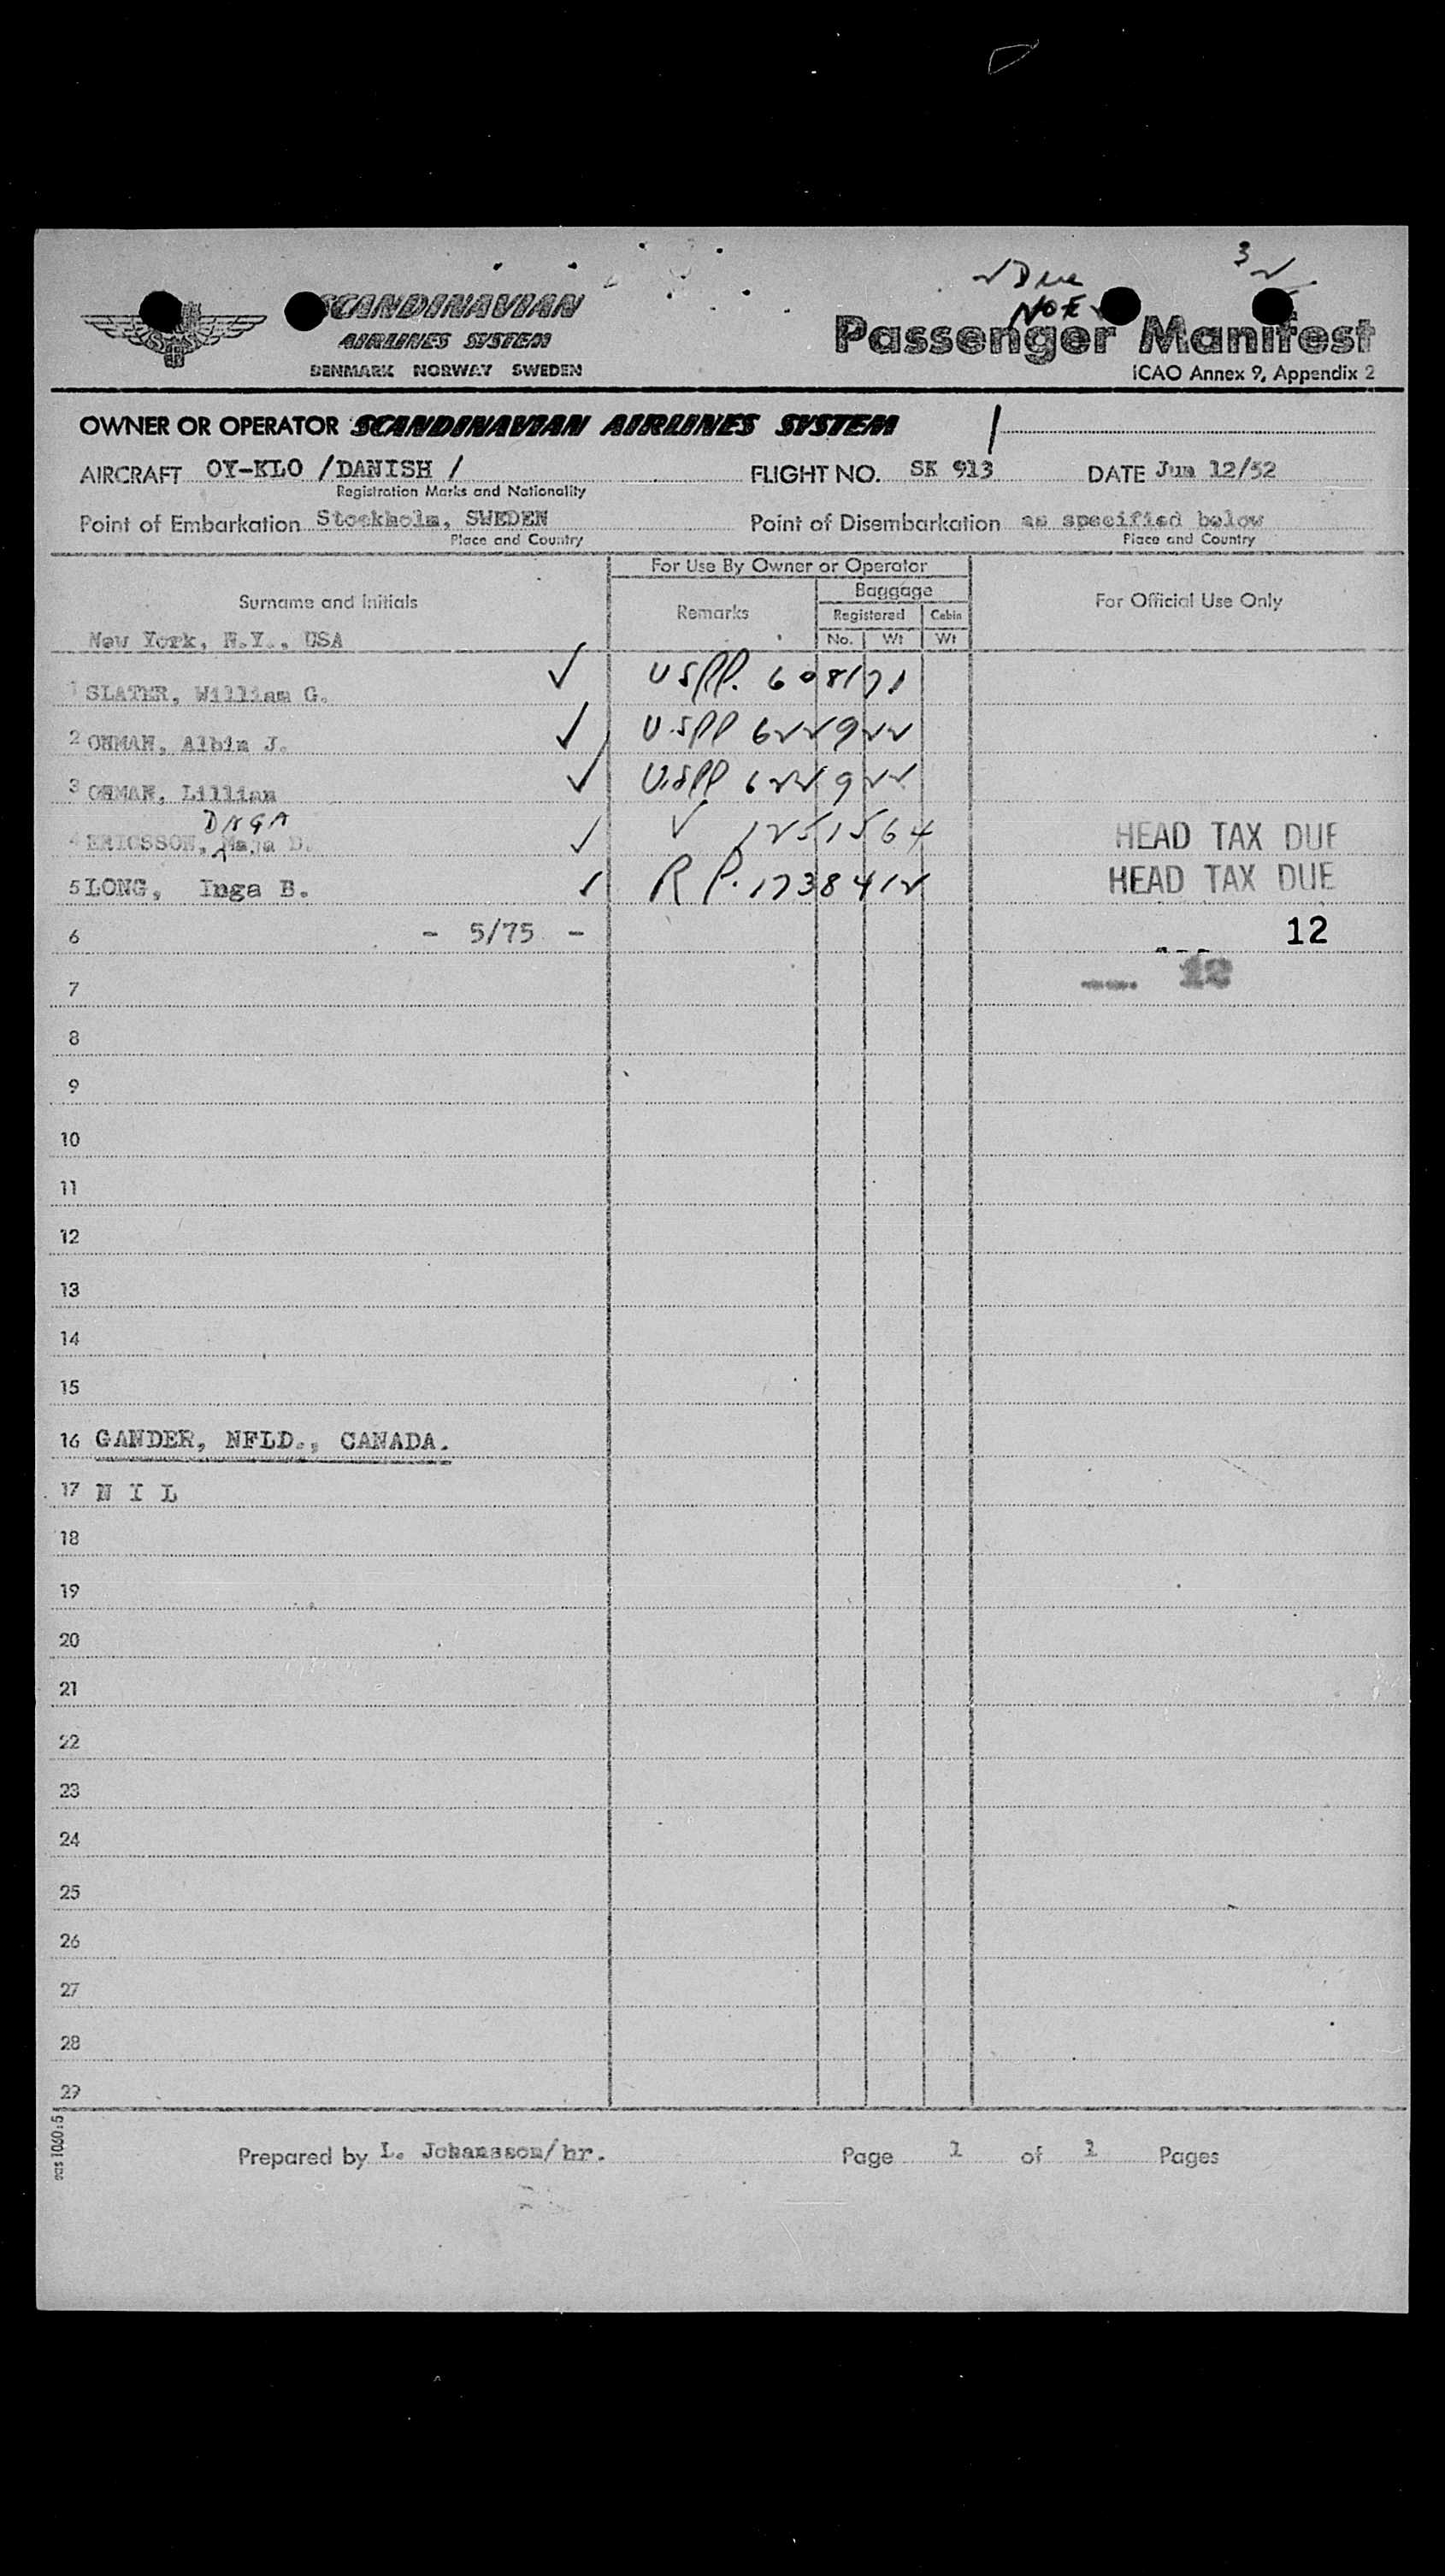 3
SCANDINAVIAN
AIRLINES SYSTEM
DENMARK NORWAY SWEDEN
Passenger Manifest
ICAO Annex 9, Appendix 2
OWNER OR OPERATOR SCANDINAVIAN AIRLINES SYSTEM
AIRCRAFT OY-KLO /DANISH / FLIGHT NO. SK 913 DATE Jun 12/52
Registration Marks and Nationality
Point of Embarkation Stockholm, SWEDEN Point of Disembarkation as specified below
Place and Country Place and Country
For Use By Owner or Operator
Surname and Initials Remarks Baggage For Official Use Only
Registered Cabin
No. Wt Wt
New York, N.Y., USA
1 SLATER, William G. ✓ USPP. 608171
2 OHMAN, Albin J. ✓ U.SPP 622922
3 OHMAN, Lillian ✓ U.SPP 622922
DAGA
4 ERICSSON, Maja D. ✓ V 1251564 HEAD TAX DUE
5 LONG, Inga B. ✓ R P. 1738412 HEAD TAX DUE
6 - 5/75 - 12
7 12
8
9
10
11
12
13
14
15
16 GANDER, NFLD., CANADA.
17 N I L
18
19
20
21
22
23
24
25
26
27
28
29
Prepared by L. Johansson/hr. Page 1 of 1 Pages